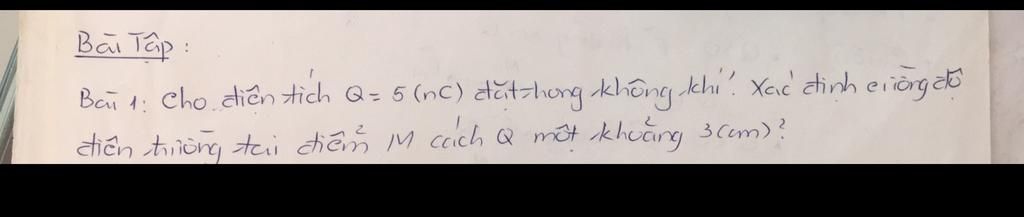 Bài Tập :
Bài 1: Cho điện tích Q = 5 (nC) đặt trong không khí. Xác định cường độ
điện trường tại điểm M cách Q một khoảng 3 (cm)?